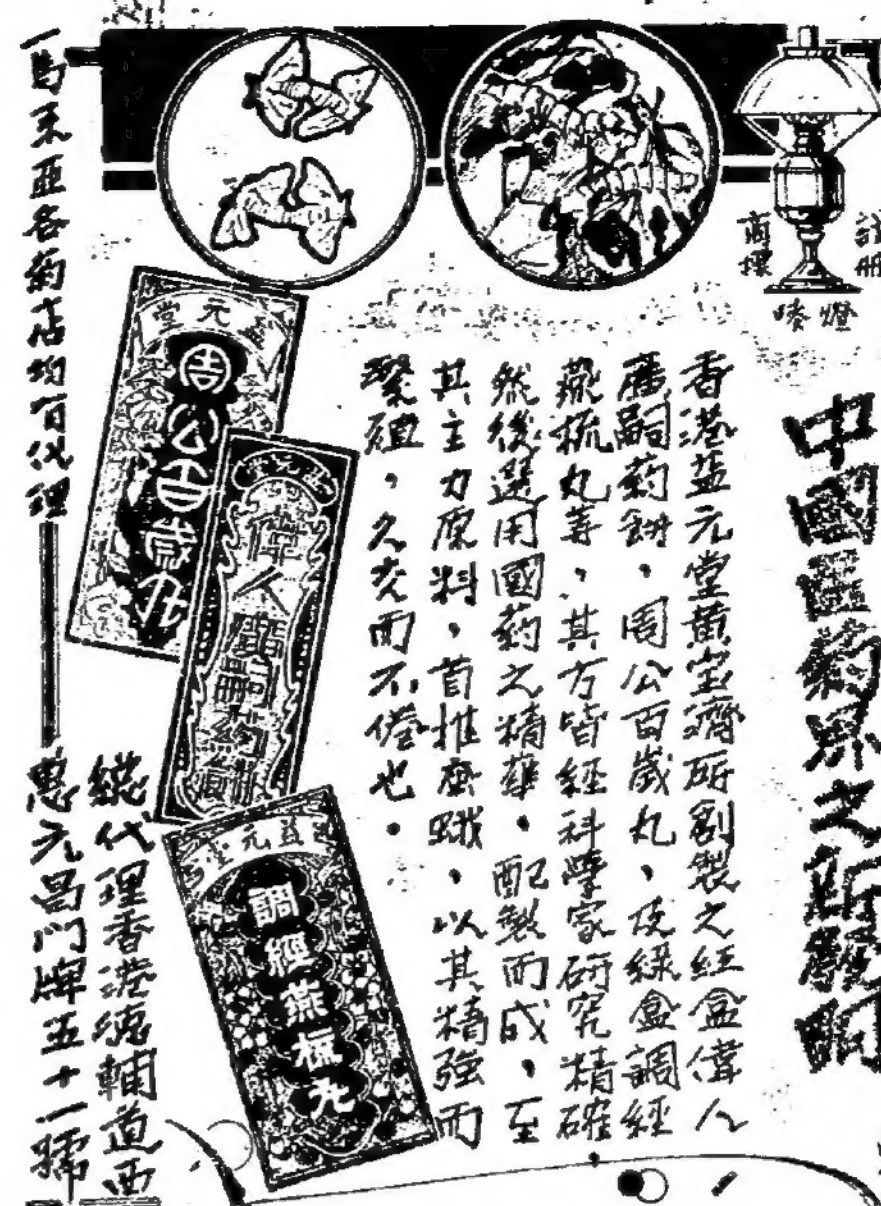 註冊
商標
嘜燈
中國醫藥界之新發明
香港益元堂黃宝濟所創製之紅盒偉人
廣嗣葯餅，周公百歲丸，及綠盒調經
燕梳丸等，其方皆經科學家研究精確，
然後選用國葯之精華，配製而成，至
其主力原料，首推蚕蛾，以其精強而
緊細，久交而不倦也。
益元堂
周公百歲丸
益元堂
偉人廣嗣葯餅
益元堂
調經燕梳丸
總代理香港德輔道西
惠元昌門牌五十一號
馬來亞各葯店均有代理